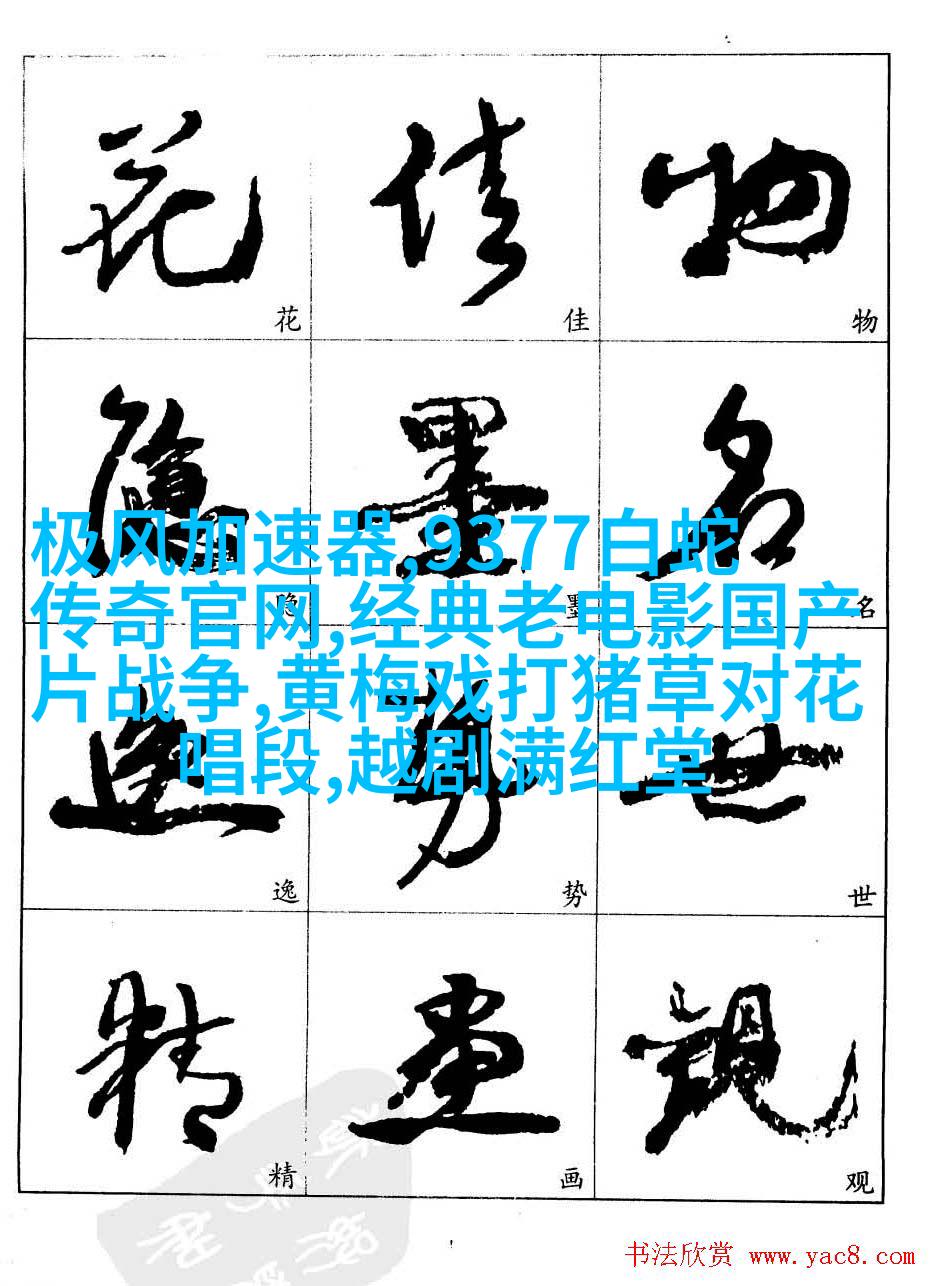 花 佳 物
花 佳 物
隐 墨 名
隐 墨 名
极风加速器,9377白蛇
传奇官网,经典老电影国产
片战争,黄梅戏打猪草对花
唱段,越剧满红堂
逸 势 世
逸 势 世
精 画 观
精 画 观
书法欣赏 www.yac8.com